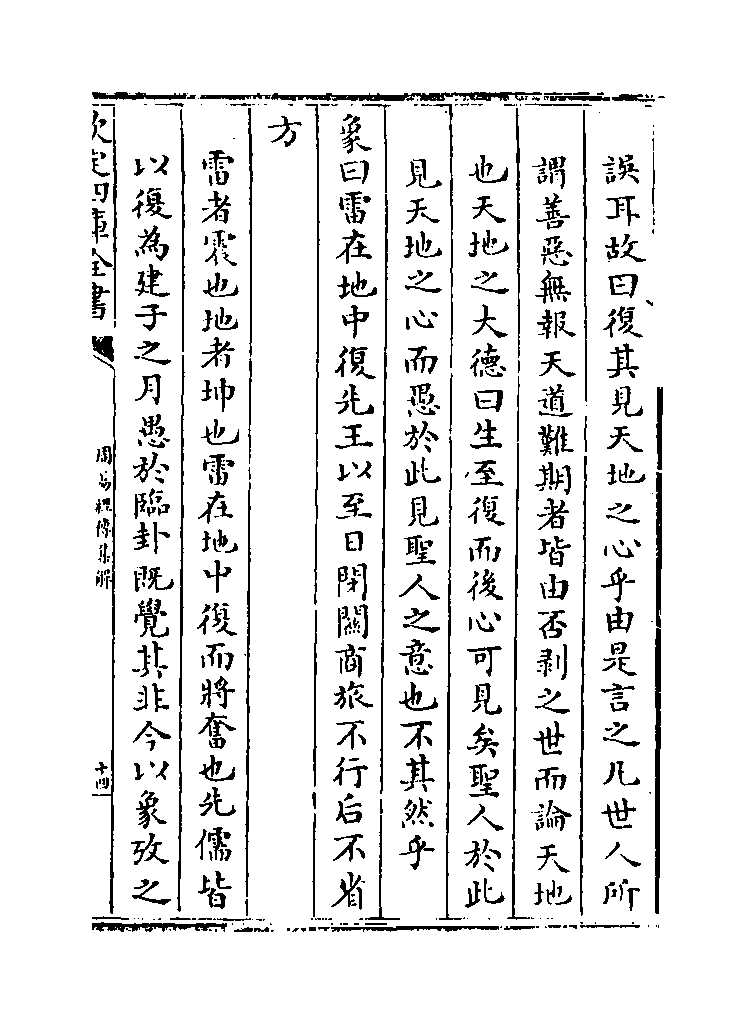 誤耳故曰復其見天地之心乎由是言之凡世人所
謂善惡無報天道難期者皆由否剥之世而論天地
也天地之大德曰生至復而後心可見矣聖人於此
見天地之心而愚於此見聖人之意也不其然乎
象曰雷在地中復先王以至日閉關商旅不行后不省
方
雷者震也地者坤也雷在地中復而將奮也先儒皆
以復為建子之月愚於臨卦既覺其非今以象攷之
欽定四庫全書
周易經傳集解
十四